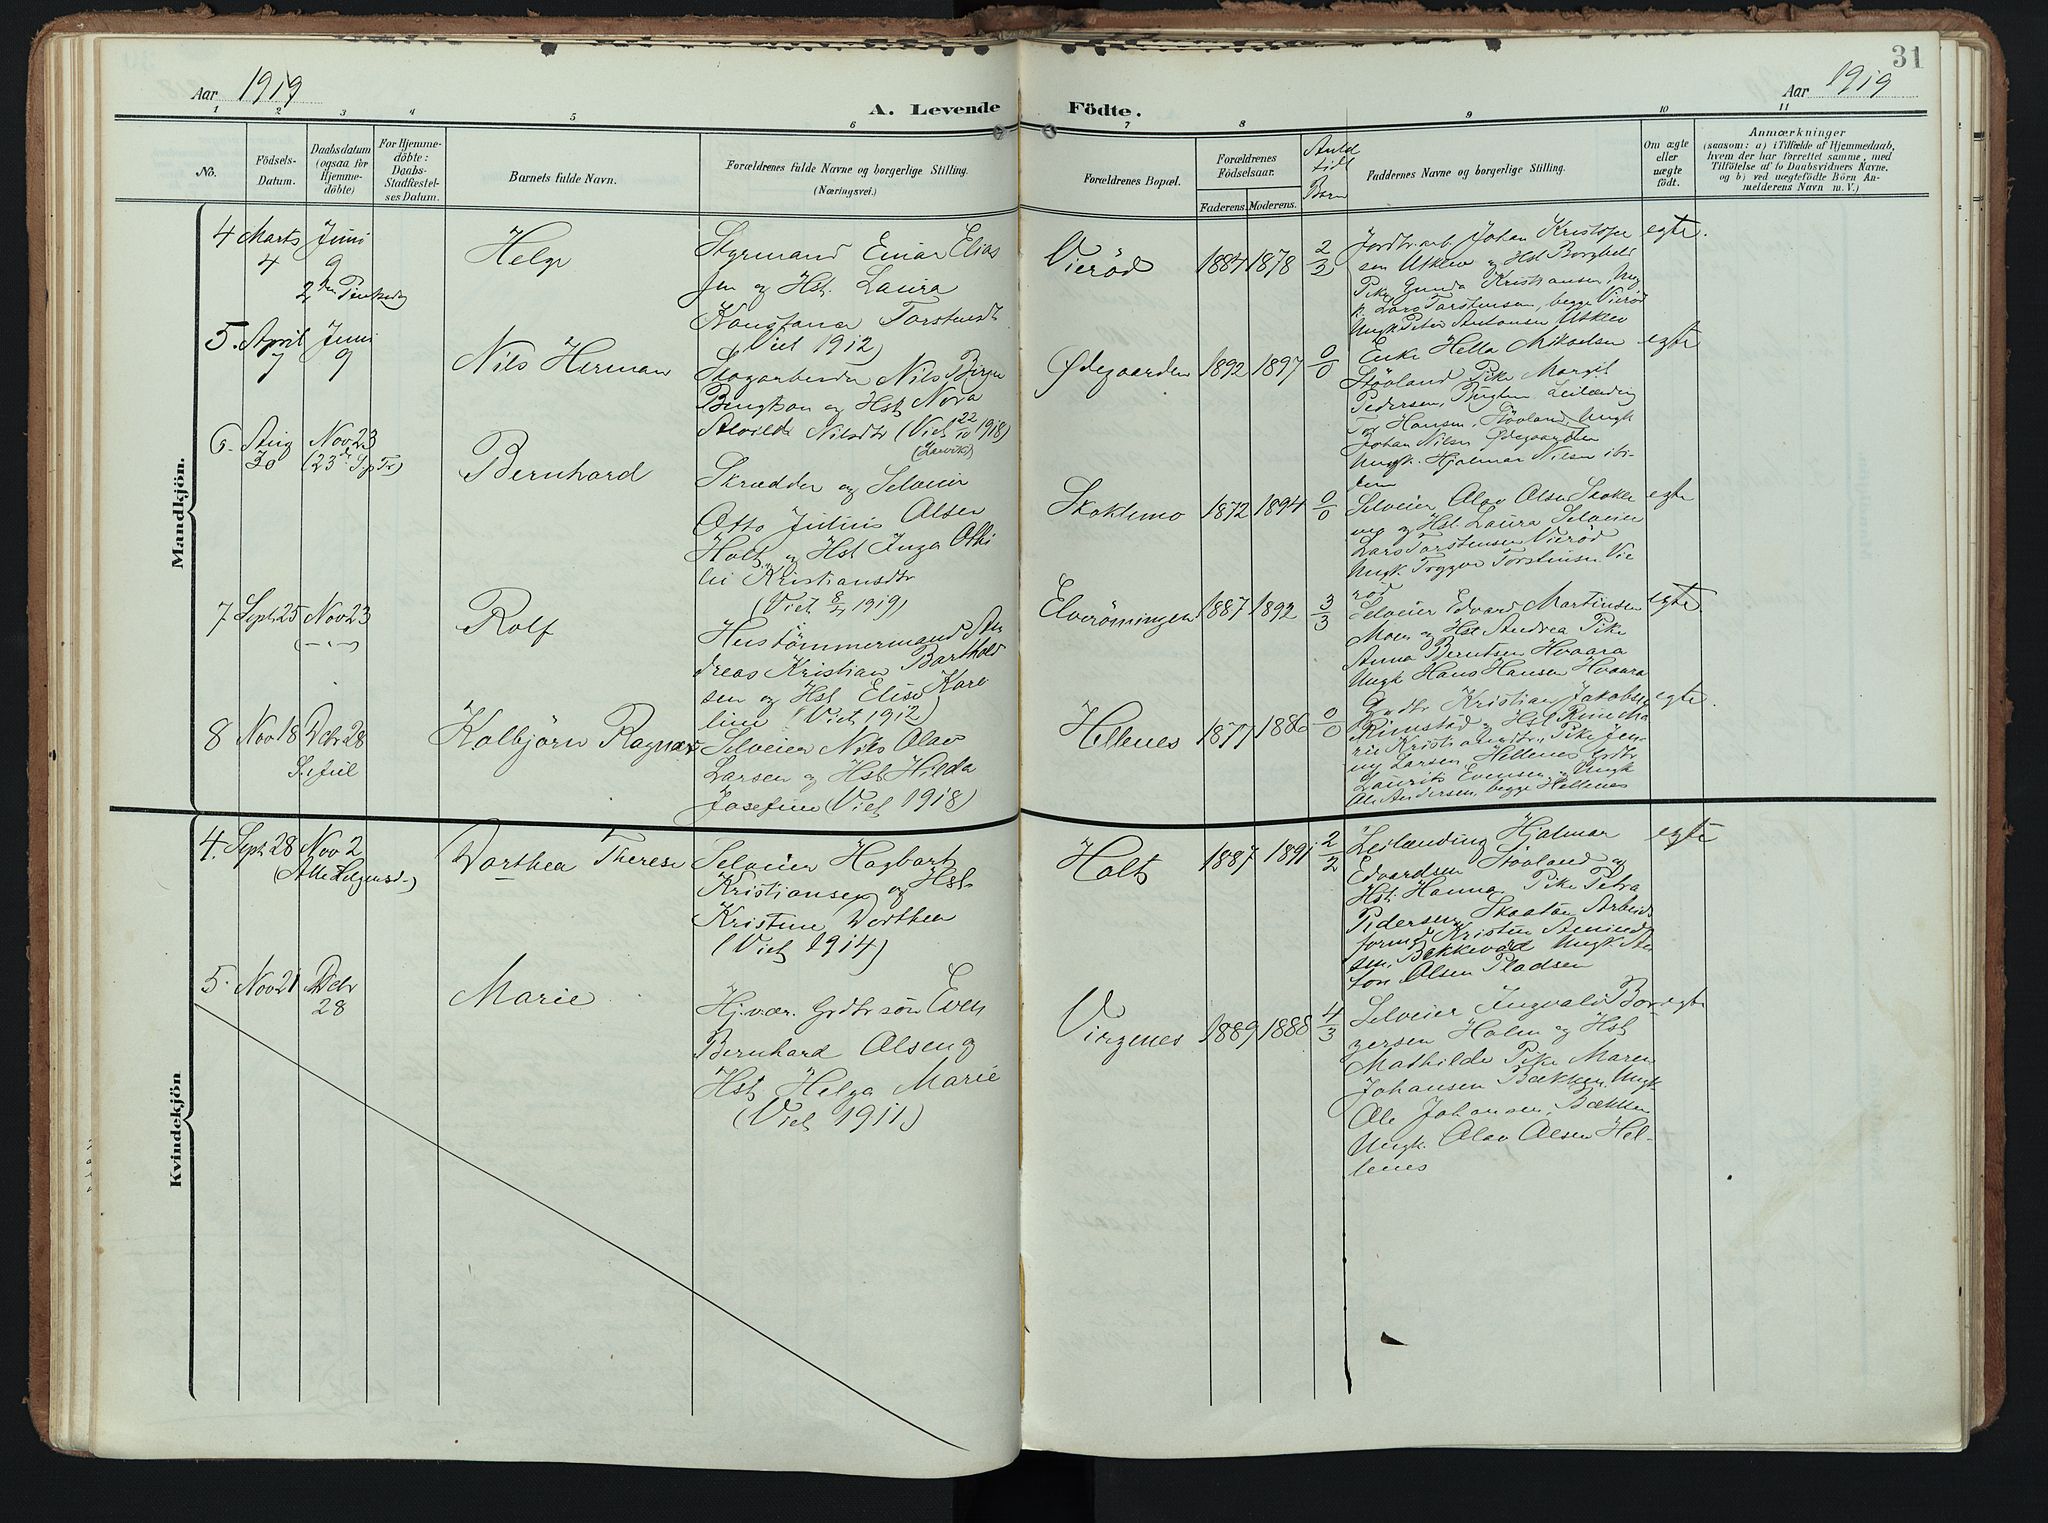 31
Aar 1919
Aar 1919
A. Levende Födte.
1 2 3 4 5 6 7 8 9 10 11
No.
Födsels-
Datum.
Daabsdatum
(ogsaa for
Hjemme-
döbte)
For Hjemme-
döbte:
Daabs-
Stadfæstel-
ses Datum.
Barnets fulde Navn.
Forældrenes fulde Navne og borgerlige Stilling.
(Næringsvei.)
Forældrenes Bopæl.
Forældrenes
Födselsaar.
Faderens. Moderens.
Antal
tidl
Barn
Faddernes Navne og borgerlige Stilling.
Om ægte
eller
uægte
födt.
Anmærkninger
(saasom: a) i Tilfælde af Hjemmedaab,
hvem der har forrettet samme, med
Tilföielse af to Daabsvidners Navne,
og b) ved uegtefödte Börn An-
melderens Navn m. V.)
Mandkjön.
4 Marts
4
Juni
9
2den Pinsedag
Helge
Styrmand Einar Elias
sen og Hst Laura
Konstanse Torstensdt
(Viet 1912)
Vieröd
1884 1878 2/3
Jordbr.arb. Johan Kristofer
sen Utklev og Hst Borghild
Pike Gunda Kristiansen, Ung
k. Lars Torstensen, begge Vieröd
Ungk Peter Antonsen Utklev
egte.
5. April
7
Juni
9
Nils Herman
Skogarbeider Nils Birger
Bengtson og Hst Nora
Alvilde Nilsdtr (Viet 22/10 1918)
(Larvik)
Ødegaarden
1892 1897 0/0
Enke Hella Mikaelsen
Stövland Pike Margit
Pedersen, Leilænding
Tor Hansen, Stövland, Ungk
Johan Nilsen Ødegaarden
Ungk. Hjalmar Nilsen ibi-
dem
egte
6. Aug
30
Nov 23
(23de S. p. Tr)
Bernhard
Skrædder og Selveier
Otto Julius Olsen
Holt og Hst Inga Othi
lie Kristiansdtr
(Viet 8/4 1919)
Skoklemo
1872 1894 0/0
Selveier Olav Olsen Skoklev
veg og Hst. Laura Selveier
Lars Torstensen Vieröd
Ungk Trygve Torstensen Vie
röd
egte
7 Sept 25 Nov 23
(—"—)
Rolf
Hustömmermand An
dreas Kristian Barthold
sen og Hst Elise Kare
line (Viet 1912)
Elverömningen
1887 1892 3/3
Selveier Edvard Martinsen
Moen og Hst Andrea Pike
Anna Berntsen Hvaara
Ungk Hans Hansen Hvaara
egte
8 Nov 18 Decbr 28
S. e. Jul
Kolbjörn Ragnar
Selveier Nils Olav
Larsen og Hst Hilda
Josefine (Viet 1918)
Hellenes
1877 1886 0/0
Grdbr Kristian Jakobsen
Rimstad og Hst Rine Ma
rie Kristiansdtr., Pike Jen-
ny Larsen, Hellenes, Grdbr
Laurits Evensen og Ungk
Ole Andersen, begge Hellenes
egte.
Kvindekjön
4. Sept 28 Nov 2
(Alle Helgensd.)
Dorthea Therese
Selveier Hagbart
Kristiansen og Hst
Kristine Dorthea
(Viet 1914)
Holt
1887 1891 2/2
Leilænding Hjalmar
Edvardsen Stövland og
Hst Hanna, Pike Petra
Pedersen, Skaatön Arbeids
formd Kristen Amund
sen, Bakkevold Ungk An
ton Olsen Pladsen
egte
5. Nov 21 Decbr
28
Marie
Hj.vær. Grdbr sön Even
Bernhard Olsen og
Hst Helga Marie
(Viet 1911)
Virgenes
1889 1888 4/3
Selveier Ingvald Bor
gersen Holm og Hst
Mathilde Pike Maren
Johansen Bækken, Ungk
Ole Johansen, Bækken
Ungk. Olav Olsen Hel-
lenes
egte